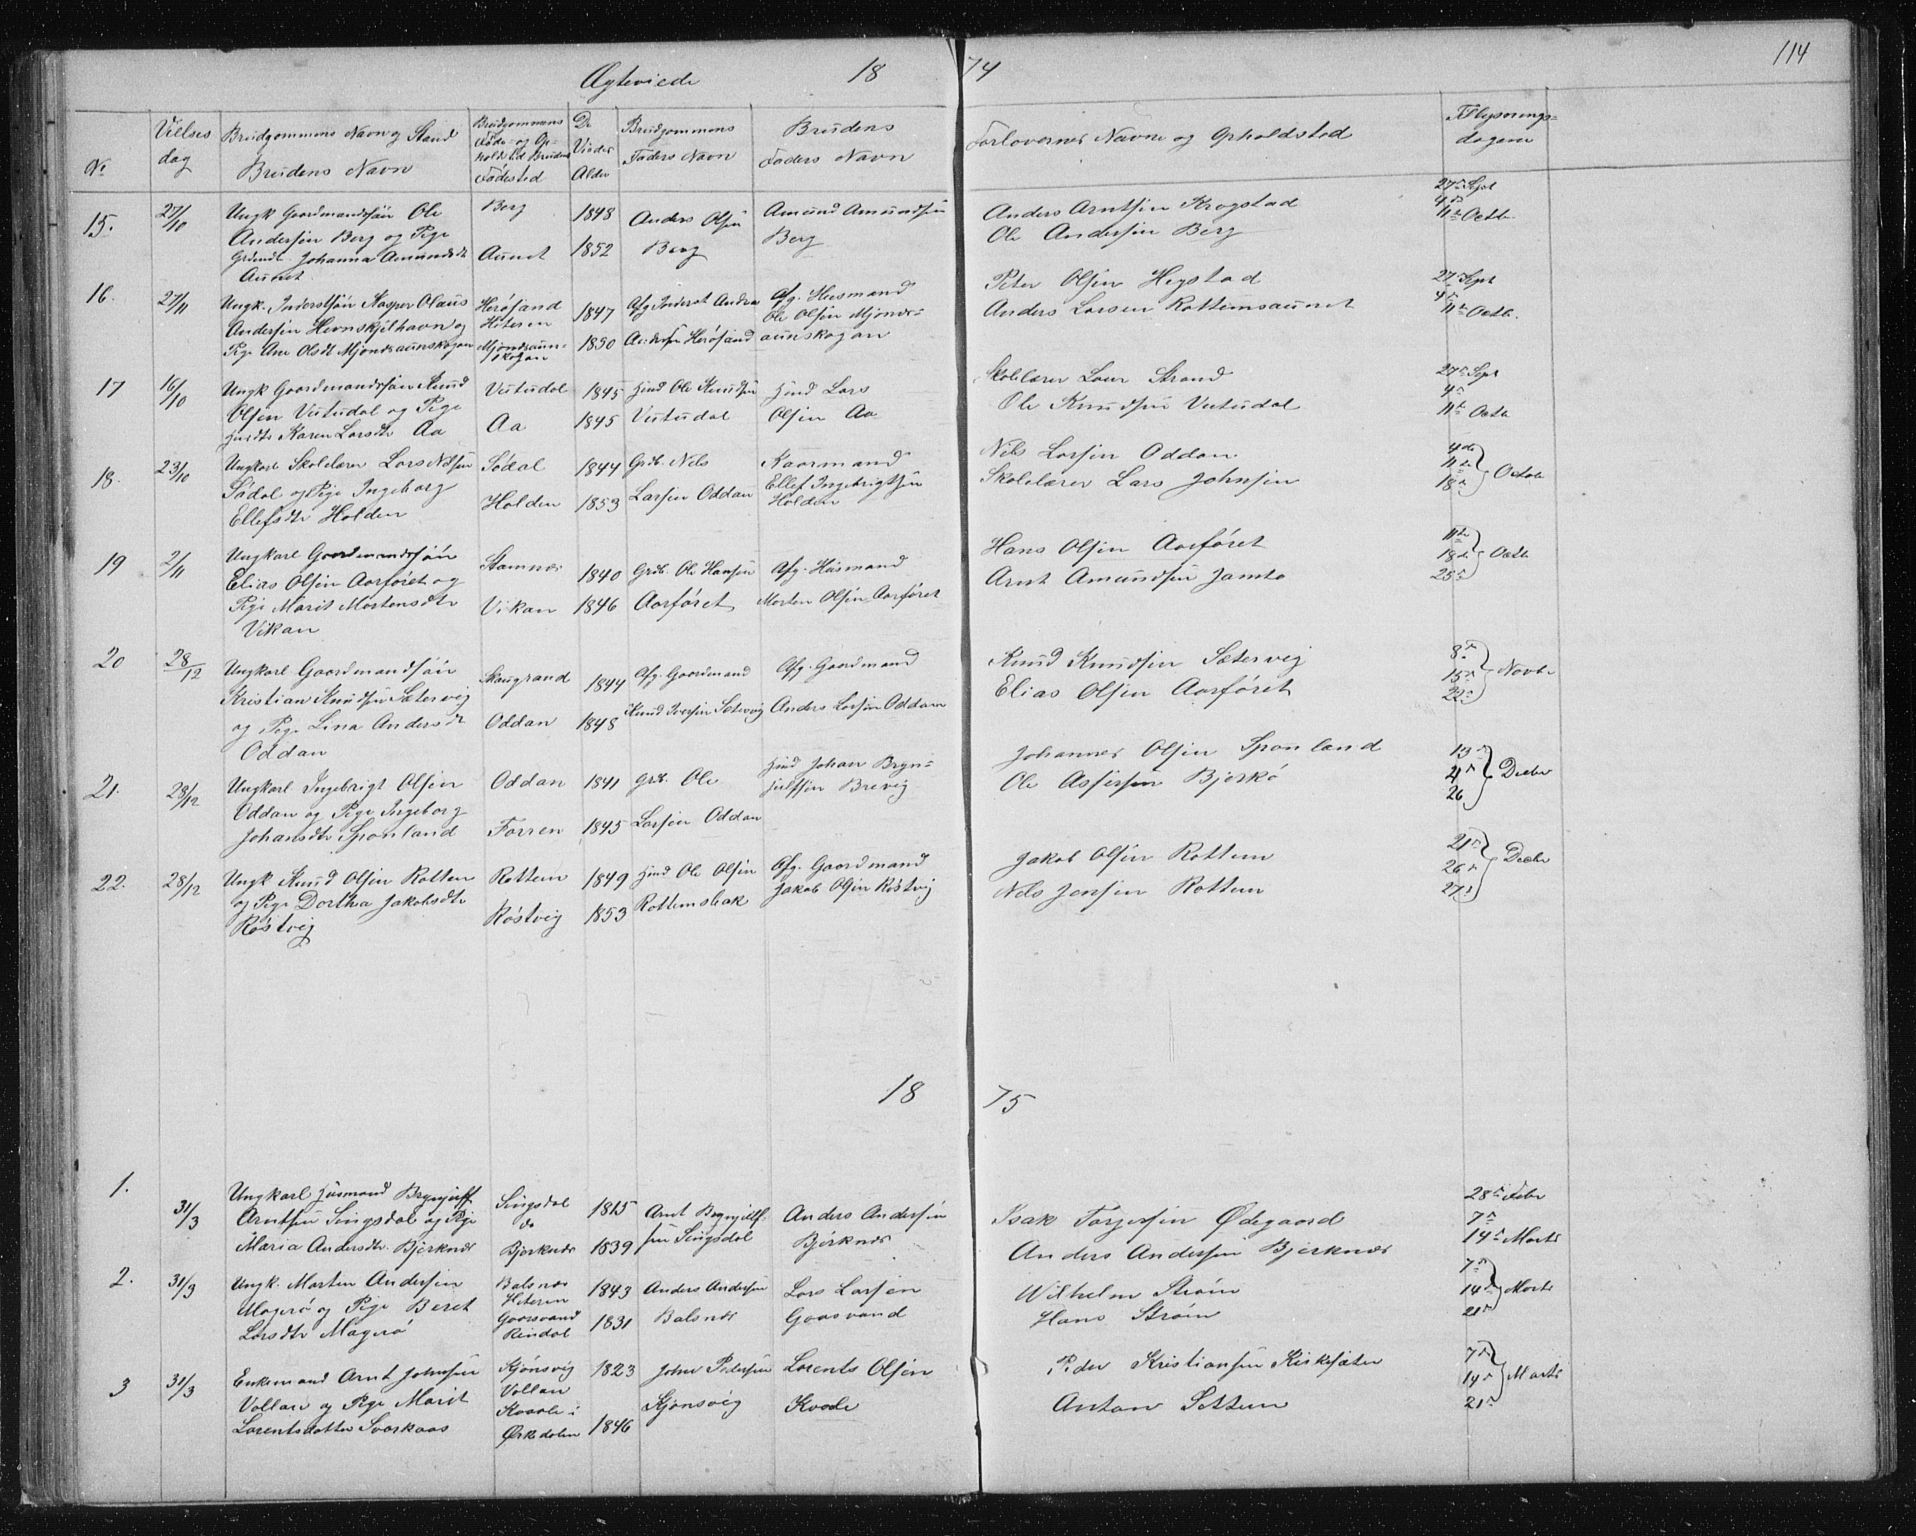 114
Ægteviede 18 74
No
Vielses dag
Brudgommens Navn og Stand
Brudens Navn
Brudgommens Føde- og Opholdssted Brudens Fødested
De Viedes Alder
Brudgommens Faders Navn
Brudens Faders Navn
Forlovernes Navne og Opholdsstad
Tillysnings-dagene
15. 27/10
Ungk Gaardmandssøn Ole
Andersen Berg og Pige
Johanna Amundsdt
Aunet
Berg
Aunet
1848
1852
Anders Olsen
Berg
Amund Amundsen
Berg
Anders Arntsen Krogstad
Ole Andersen Berg
27n Sept
4n
11te Octb
16. 27/11
Ungk. Inderstsøn Kasper Olaus
Andersen Hevnskjelhavn og
Pige Ane Olsdt Mjøndsaunskogan
Herøsand
Hiteren
Mjøndsaun-
skogan
1847
1850
Afg Inderst Anders
Andersen Herøsand
Afg. Husmand
Ole Olsen Mjønds-
aunskogan
Peter Olsen Hegstad
Anders Larsen Rottemsaunet
27n Sept
4n
11te Octb.
17 16/10
Ungk Gaardmandssøn Knud
Olsen Vutudal og Pige
Karen Larsdt Aa
Vutudal
Aa
1845
1845
Hmd Ole Knudsen
Vutudal
Hmd Lars
Olsen Aa
Skolelærer Strand
Ole Knudsen Vutudal
27n Sept
4n
11te Octb
18. 23/10
Ungkarl Skolelærer Lars Nilsen
Sødal og Pige Ingeborg
Ellefsdtr Holden
Sødal
Holden
1844
1853
Grdb. Nels
Larsen Oddan
Kaarmand
Ellef Ingebrigtsen
Holden
Nels Larsen Oddan
Skolelærer Lars Johnsen
4de
11te
18n
Octob
19 2/11
Ungkarl Gaardmandssøn
Elias Olsen Aarføret og
Pige Marit Mortensdtr
Vikan
Stamnes
Vikan
1840
1846
Grdb. Ole Hansen
Aarføret
Afg. Husmand
Morten Olsen Aarføret
Hans Olsen Aarføret
Arnt Amundsen Jamto
11te
18de
25n
Octb
20 28/12
Ungkarl Gaardmandssøn
Kristian Knudsen Sætervig
og Pige Lina Andersdt
Oddan
Skaugrand
Oddan
1844
1848
Afg. Gaardmand
Knud Iversen Setervig
Afg. Gaardmand
Anders Larsen Oddan
Knud Knudsen Sætervig
Elias Olsen Aarføret
8n
15n
22n
Novbr
21. 28/12
Ungkarl Ingebrigt Olsen
Oddan og Pige Ingeborg
Johansdtr Sponland
Oddan
Forren
1841
1845
Grdb. Ole
Larsen Oddan
Hmd Johan Bryn-
julfsen Brevig
Johannes Olsen Sponland
Ole Assersen Bjerkø
13n
21n
26
Decbr
22. 28/12
Ungk Knud Olsen Rottem
og Pige Dorthea Jakobsdtr
Røstvig
Rottem
Røstvig
1849
1853
Hmd Ole Olsen
Rottemsbak
Afg. Gaardmand
Jakob Olsen Røstvig
Jakob Olsen Rottem
Nels Jensen Rottem
21n
26n
27n
Decbr
18 75
1. 31/3
Ungkarl Husmand Brynjulf
Arntsen Singsdal og Pige
Maria Andersdtr Bjerknes
Singsdal
do
Bjerknes
1815
1839
Arnt Brynjulf-
sen Singsdal
Anders Andersen
Bjerknes
Isak Torgersen Ødegaard
Anders Andersen Bjerknes
28n Febr
7n
14n Marts
2. 31/3
Ungk. Morten Andersen
Magerø og Pige Beret
Larsdtr Magerø
Balsnes
Hiteren
Gaasvand
Rindal
1843
1831
Anders Andersen
Balsnes
Lars Larsen
Gaasvand
Wilhelm Strøm
Hans Strøm
7n
14n
21n
Marts
3 31/3
Enkemand Arnt Johnsen
Vollan og Pige Marit
Lorentsdatter Svarkaas
Kjønsvig
Vollan
Kvaale i
Ørkedalen
1823
1846
John Pedersen
Kjønsvig
Lorents Olsen
Kvaale
Peder Kristiansen Kirkesæter
Anton Settem
7n
14n
21n
Marts